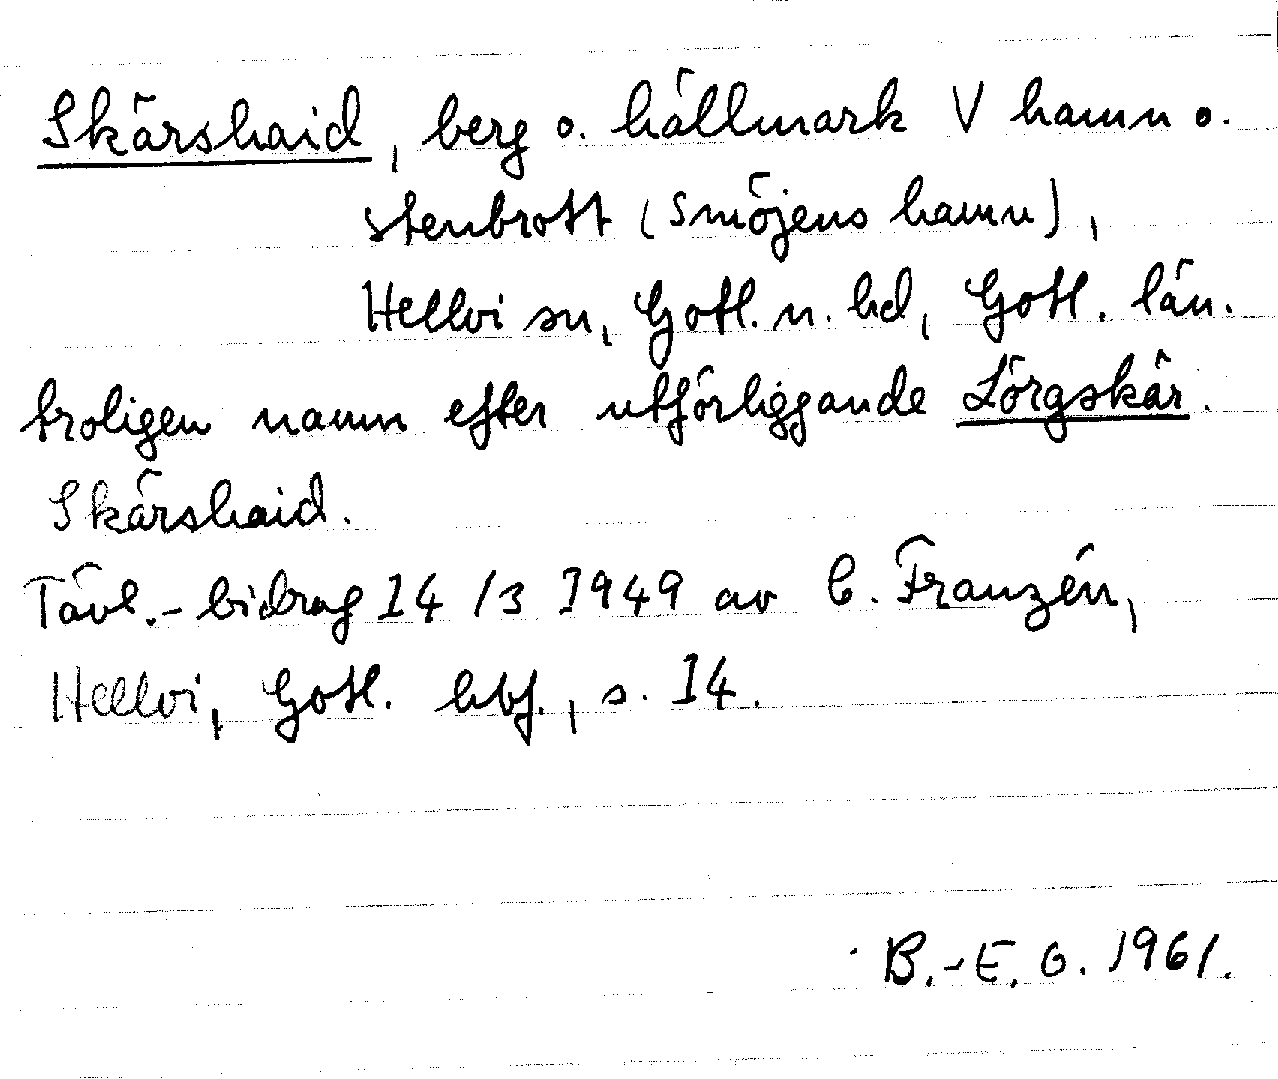 Skärshaid, berg o. hällmark V hamn o.
stenbrott (Smöjens hamn),
Hellvi sn, Gotl. n. hd, Gotl. län.
troligen namn efter utförliggande Lörgskär.
Skärshaid.
Tävl.-bidrag 14/3 1949 av C. Franzén,
Hellvi, Gotl. hbf., s. 14.
B.-E. O. 1961.